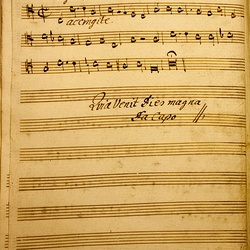 accingite.
Quia Venit Dies magna
Da Capo